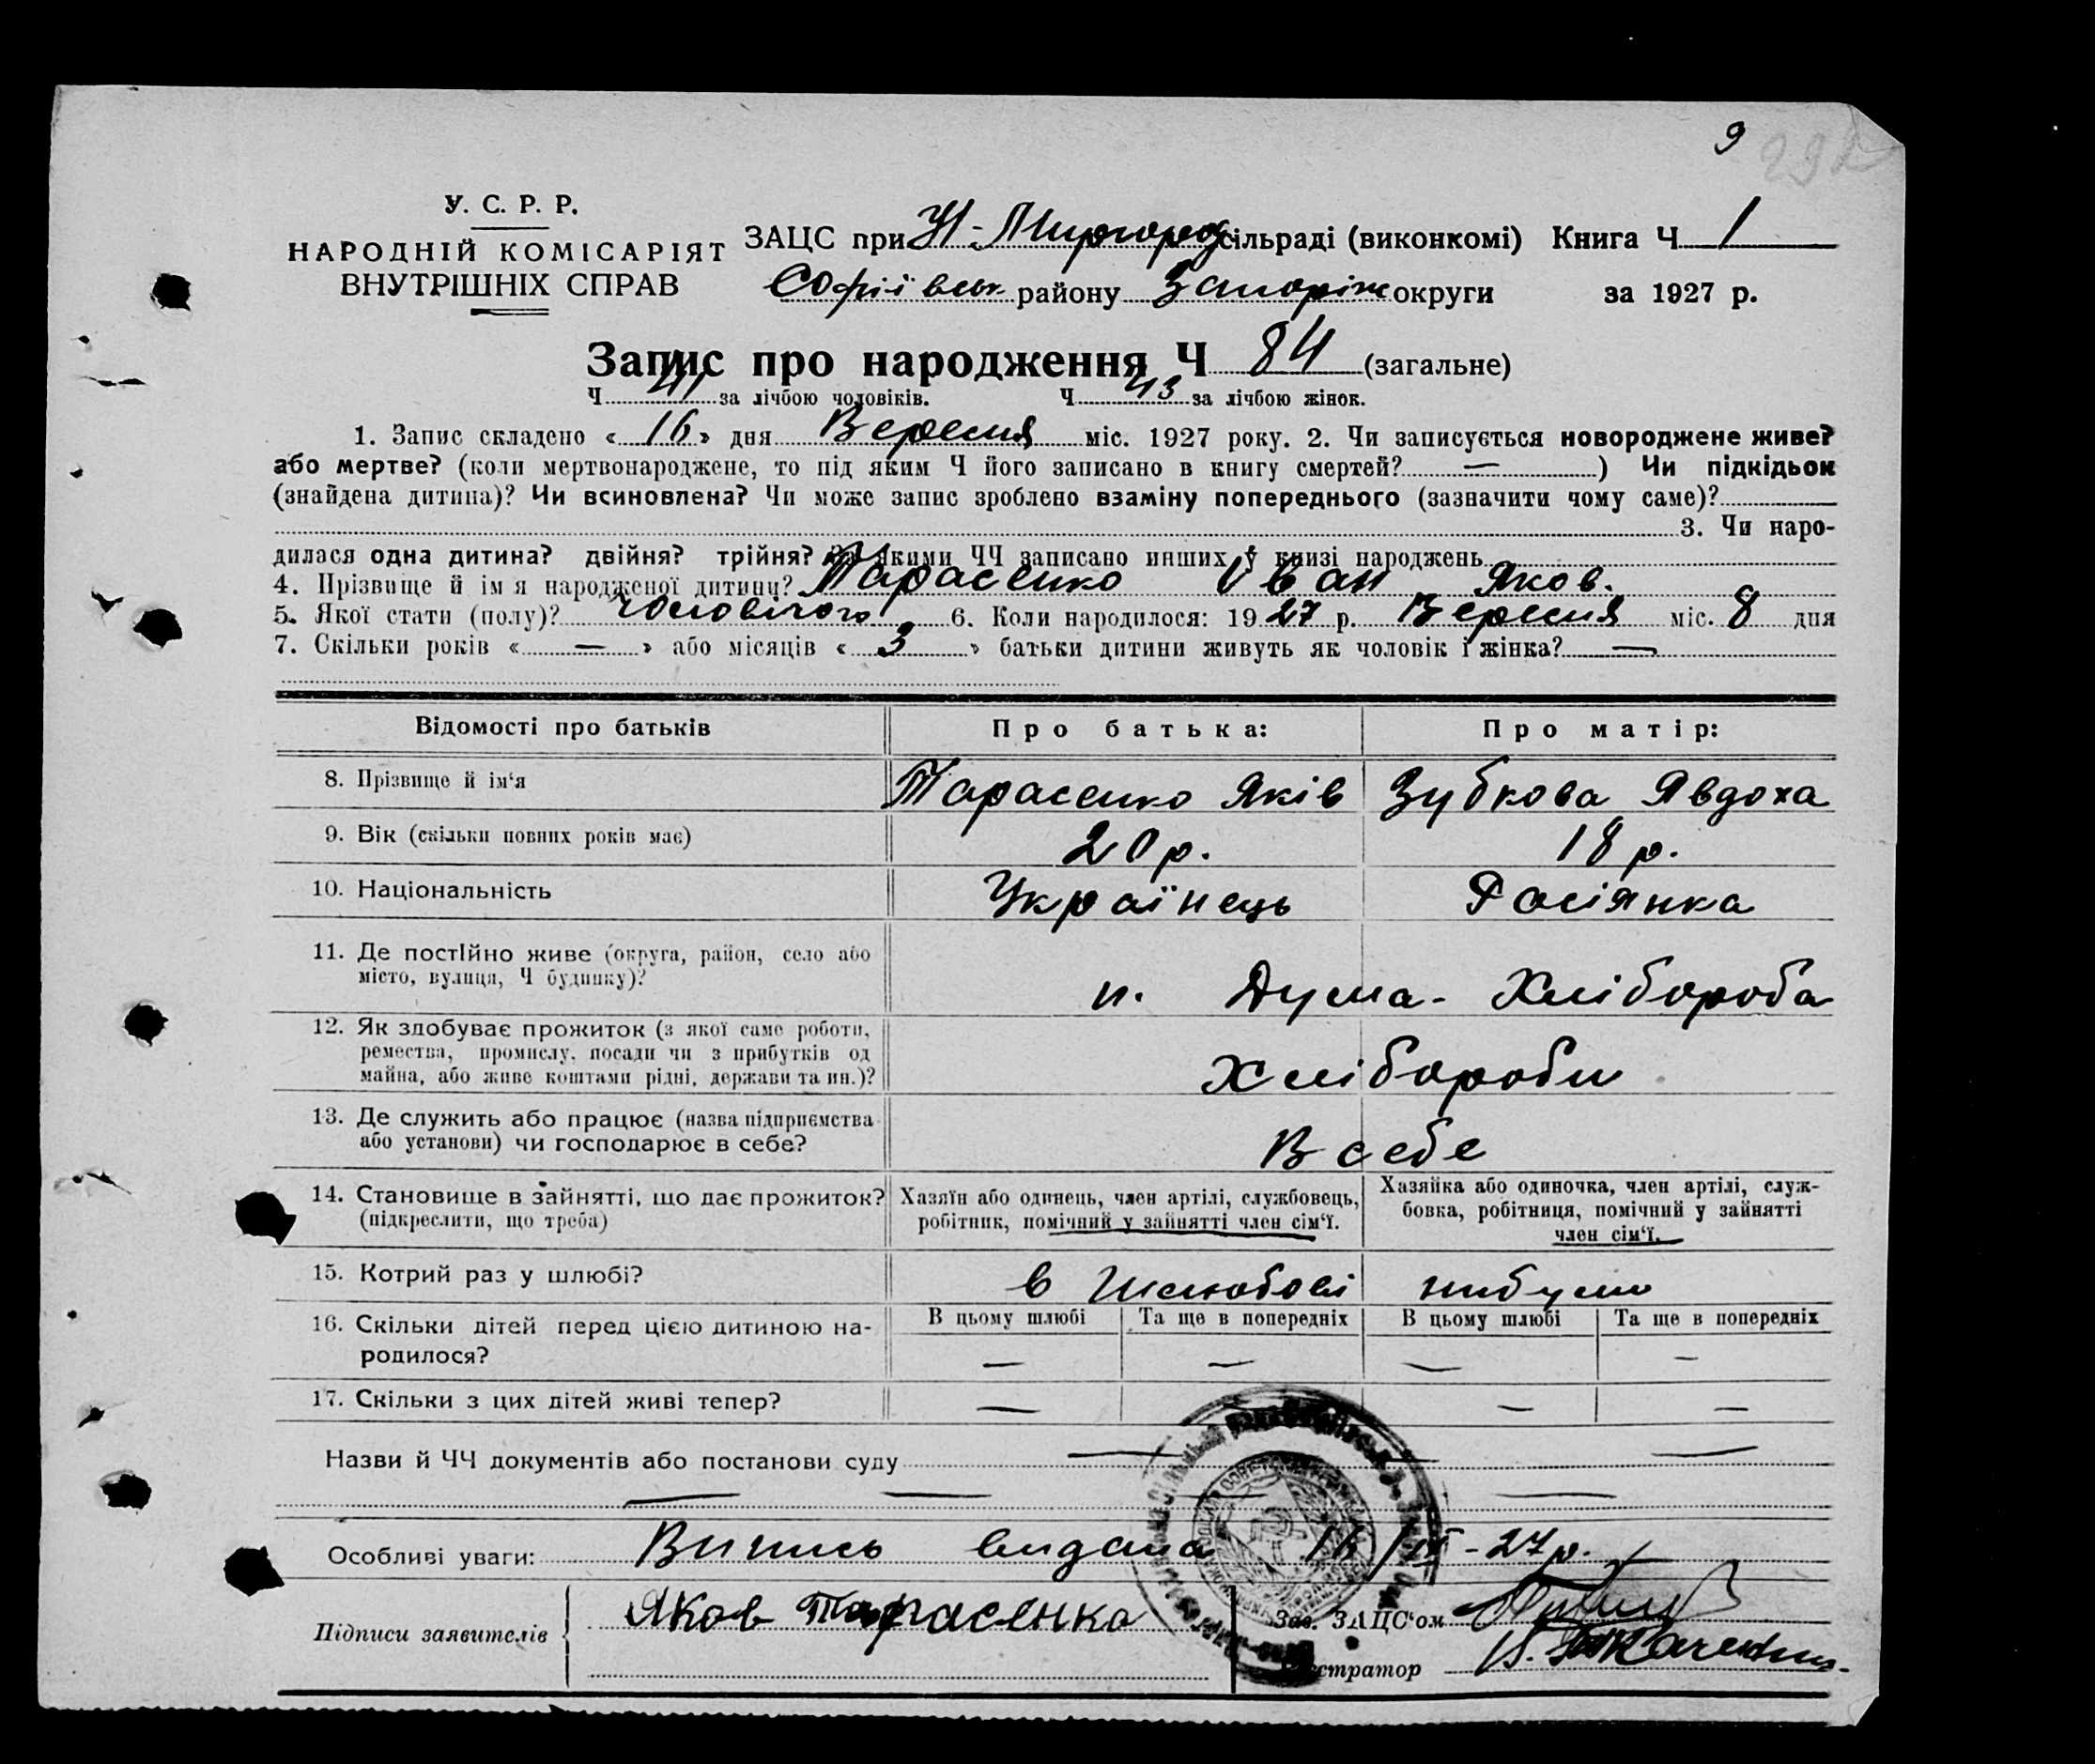 9
292
У. С. Р. Р.
НАРОДНІЙ КОМІСАРІЯТ
ВНУТРІШНІХ СПРАВ
ЗАЦС при Н-Миргород сільраді (виконкомі) Книга Ч 1
Софіївськ. району Запоріж округи за 1927 р.
Запис про народження Ч 84 (загальне)
Ч 41 за лічбою чоловіків. Ч 43 за лічбою жінок.
1. Запис складено « 16 » дня Вересня міс. 1927 року. 2. Чи записується новороджене живе?
або мертве? (коли мертвонароджене, то під яким Ч його записано в книгу смертей? — ) Чи підкідьок
(знайдена дитина)? Чи всиновлена? Чи може запис зроблено взаміну попереднього (зазначити чому саме)?
3. Чи наро-
дилася одна дитина? двійня? трійня? За якими ЧЧ записано инших у книзі народжень
4. Прізвище й ім я народженої дитини? Тарасенко Іван Яков.
5. Якої стати (полу)? Чоловічого 6. Коли народилося: 1927 р. Вересня міс. 8 дня
7. Скільки років « — » або місяців « 3 » батьки дитини живуть як чоловік і жінка? —
Відомості про батьків Про батька: Про матір:
8. Прізвище й ім‘я Тарасенко Яків Зубкова Явдоха
9. Вік (скільки повних років має) 20 р. 18 р.
10. Національність Українець Росіянка
11. Де постійно живе (округа, район, село або
місто, вулиця, Ч будинку)? п. Дума-Хлібороба
12. Як здобуває прожиток (з якої саме роботи,
ремества, промислу, посади чи з прибутків од
майна, або живе коштами рідні, держави та ин.)? Хлібороби
13. Де служить або працює (назва підприємства
або установи) чи господарює в себе? В себе
14. Становище в зайнятті, що дає прожиток? Хазяїн або одинець, член артілі, службовець, Хазяйка або одиночка, член артілі, служ-
(підкреслити, що треба) робітник, помічний у зайнятті член сім‘ї. бовка, робітниця, помічний у зайнятті
член сім‘ї.
15. Котрий раз у шлюбі? в Шлюбові
16. Скільки дітей перед цією дитиною на- В цьому шлюбі Та ще в попередніх В цьому шлюбі Та ще в попередніх
родилося? — — — —
17. Скільки з цих дітей живі тепер? — — —
Назви й ЧЧ документів або постанови суду — —
— — —
Особливі уваги: Випись видана 16/IX-27р.
Підписи заявителів Яков Тарасенко Зав. ЗАЦС‘ом
Реєстратор